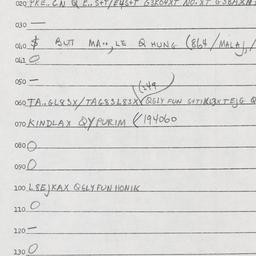 020 PKE..CN Q E..S+T/E4S+T G3KO4XT NO.XT G3BAXA
030 —
040 $ BUT MA..,LE Q HUNG (864/MALAJ,/
041 O
050 —
(249
060 TA..GL83X/TAG83L83X QGLY FUN S+TI XTEJG Q
070 KINDLAX QY PURIM (194060
080 O
090 O
100 L8EJKAX QGLY FUN HONIK
110 O
120 —
130 O